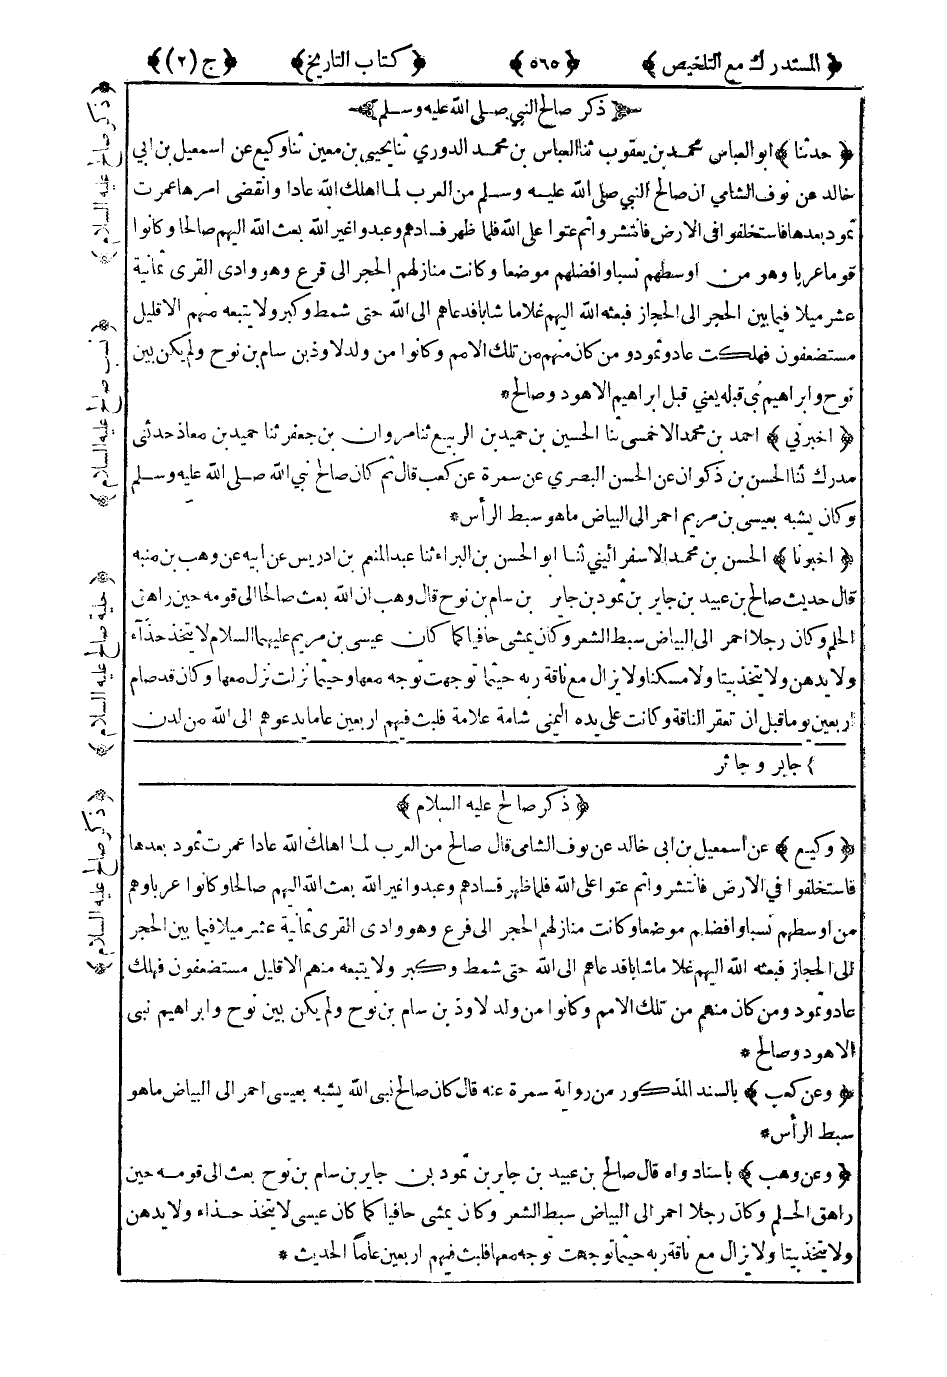 ﴿ المستدرك مع التلخيص ﴾ ﴿ ٥٦٥ ﴾ ﴿ كتاب التاريخ ﴾ ﴿ ج (٢) ﴾
ذكر صالح النبي صلى الله عليه وسلم
﴿ حدثنا ﴾ ابو العباس محمد بن يعقوب ثنا العباس بن محمد الدوري ثنا يحيى بن معين ثنا وكيع عن اسمعيل بن ابي
خالد عن نوف الشامي ان صالح النبي صلى الله عليه وسلم من العرب لما اهلك الله عادا وانقضى امرها عمرت
ثمود بعدها فاستخلفوا فى الارض فانتشروا ثم عتوا على الله فلما ظهر فسادهم وعبدوا غير الله بعث الله اليهم صالحا وكانوا
قوما عربا وهو من اوسطهم نسبا وافضلهم موضعا وكانت منازلهم الحجر الى قرع وهو وادى القرى ثمانية
عشر ميلا فيما بين الحجر الى الحجاز فبعثه الله اليهم غلاما شابا فدعاهم الى الله حتى شمط وكبر ولا يتبعه منهم الا قليل
مستضعفون فهلكت عاد وثمود و من كان منهم من تلك الامم وكانوا من ولد لاوذ بن سام بن نوح ولم يكن بين
نوح وابراهيم نبى قبله يعني قبل ابراهيم الا هود وصالح *
﴿ اخبرني ﴾ احمد بن محمد الاخمسى ثنا الحسين بن حميد بن الربيع ثنا مروان بن جعفر ثنا حميد بن معاذ حدثنى
مدرك ثنا الحسن بن ذكوان عن الحسن البصري عن سمرة عن كعب قال ثم كان صالح نبي الله صلى الله عليه وسلم
وكان يشبه بعيسى بن مريم احمر الى البياض ما هو سبط الرأس *
﴿ اخبرنا ﴾ الحسن بن محمد الاسفرائيني ثنا ابو الحسن بن البراء ثنا عبد المنعم بن ادريس عن ابيه عن وهب بن منبه
قال حديث صالح بن عبيد بن جابر بن ثمود بن جابر بن سام بن نوح قال وهب ان الله بعث صالحا الى قومه حين راهق
الحلم وكان رجلا احمر الى البياض سبط الشعر وكان يمشى حافيا كما كان عيسى بن مريم عليهما السلام لا يتخذ حذآء
ولا يدهن ولا يتخذ بيتا ولا مسكنا ولا يزال مع ناقة ربه حيثما توجهت توجه معها وحيثما نزلت نزل معها وكان قد صام
اربعين يوما قبل ان تعقر الناقة وكانت على يده اليمنى شامة علامة فلبث فيهم اربعين عاما يدعوهم الى الله من لدن
} جابر و جاثر
﴿ ذكر صالح عليه السلام ﴾
﴿ وكيع ﴾ عن اسمعيل بن ابى خالد عن نوف الشامى قال صالح من العرب لما اهلك الله عادا عمرت ثمود بعدها
فاستخلفوا في الارض فانتشروا ثم عتوا على الله فلما ظهر فسادهم وعبدوا غير الله بعث الله اليهم صالحا وكانوا عربا وهو
من اوسطهم نسبا وافضلهم موضعا وكانت منازلهم الحجر الى قرع وهو وادى القرى ثمانية عشر ميلا فيما بين الحجر
الى الحجاز فبعثه الله اليهم غلاما شابا فدعاهم الى الله حتى شمط وكبر ولا يتبعه منهم الا قليل مستضعفون فهلك
عاد وثمود ومن كان منهم من تلك الامم وكانوا من ولد لاوذ بن سام بن نوح ولم يكن بين نوح وابراهيم نبى
الا هود وصالح *
﴿ وعن كعب ﴾ بالسند المذكور من رواية سمرة عنه قال كان صالح نبى الله يشبه بعيسى احمر الى البياض ما هو
سبط الرأس *
﴿ وعن وهب ﴾ باسناد واه قال صالح بن عبيد بن جابر بن ثمود بن جابر بن سام بن نوح بعث الى قومه حين
راهق الحلم وكان رجلا احمر الى البياض سبط الشعر وكان يمشى حافيا كما كان عيسى لا يتخذ حذاء ولا يدهن
ولا يتخذ بيتا ولا يزال مع ناقة ربه حيثما توجهت توجه معها فلبث فيهم اربعين عاماً الحديث *
﴿ ذكر صالح عليه السلام ﴾
﴿ نسب صالح عليه السلام ﴾
﴿ حلية صالح عليه السلام ﴾
﴿ ذكر صالح عليه السلام ﴾